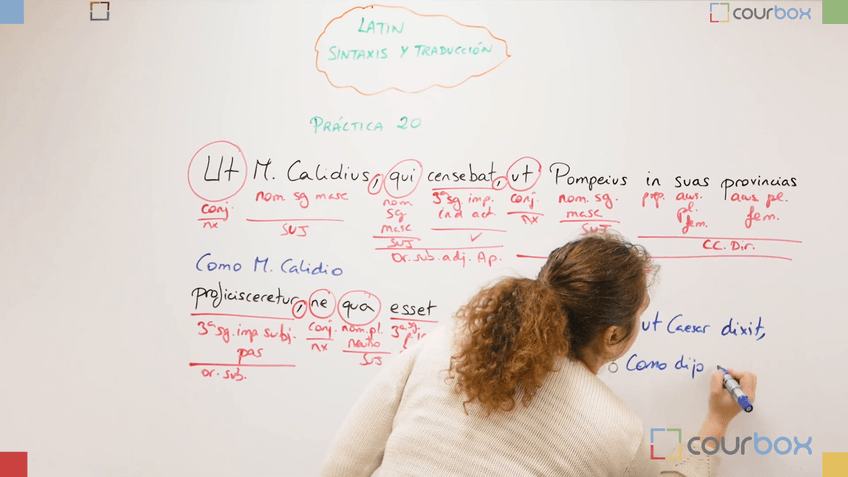 courbox
LATIN
SINTAXIS Y TRADUCCIÓN
PRÁCTICA 20
Ut M. Calidius, qui censebat, ut Pompeius in suas provincias
conj. nx
nom sg masc
SUJ
nom sg masc
SUJ
3ª sg imp. ind act
✓
Or. sub. adj. Ap.
conj. nx
nom. sg. masc
SUJ
prep. acus. pl. fem.
acus. pl. fem.
CC. Dir.
Como M. Calidio
proficisceretur, ne qua esset
3ª sg. imp subj. pas
or. sub.
conj. nx
nom. pl. neutro
SUJ
3ª sg.
ut Caesar dixit,
Como dijo
courbox